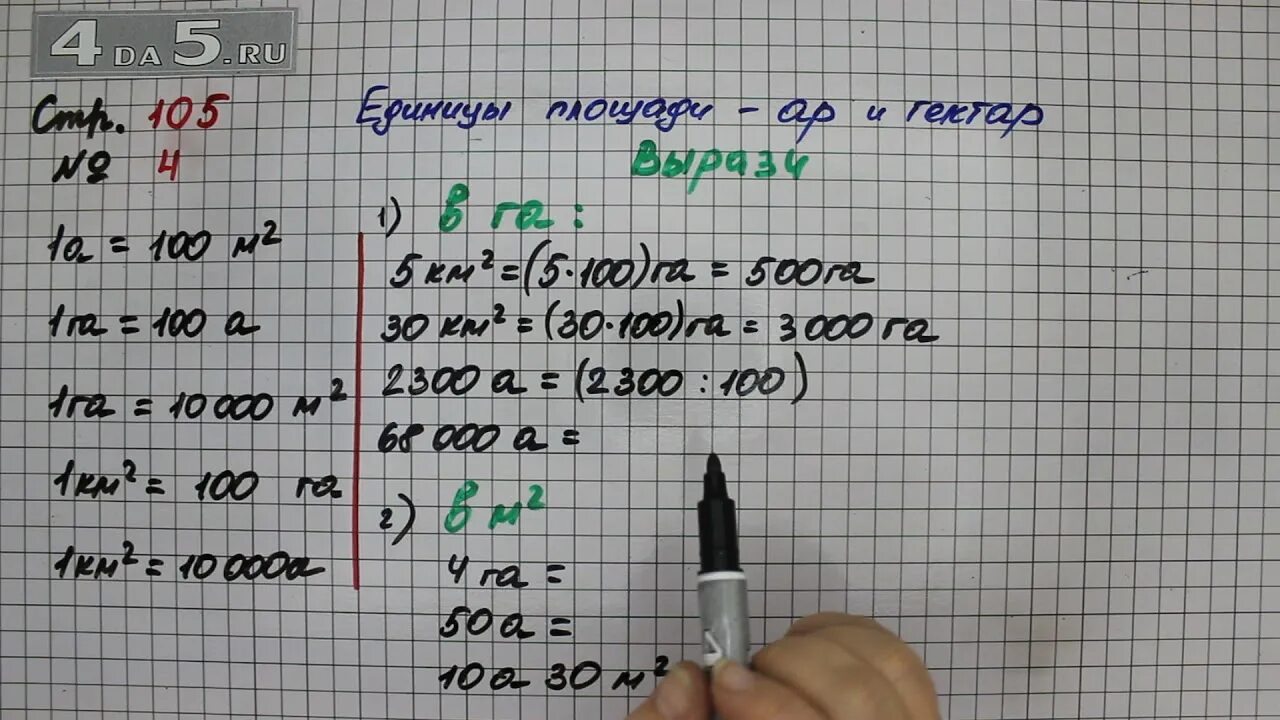 4DA5.RU
Стр. 105
№ 4
Единицы площади - ар и гектар
Вырази
1а = 100 м²
1га = 100 а
1га = 10 000 м²
1км² = 100 га
1км² = 10 000а
1) в га:
5 км² = (5·100)га = 500га
30 км² = (30·100)га = 3 000 га
2300 а = (2300 : 100)
68 000 а =
2) в м²
4 га =
50 а =
10а 30 м²